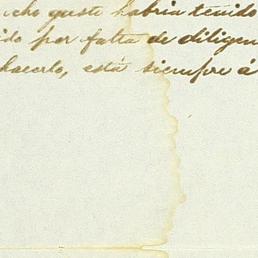 cho gusto habria tenido
ido por falta de diligen
hacerlo, está siempre á